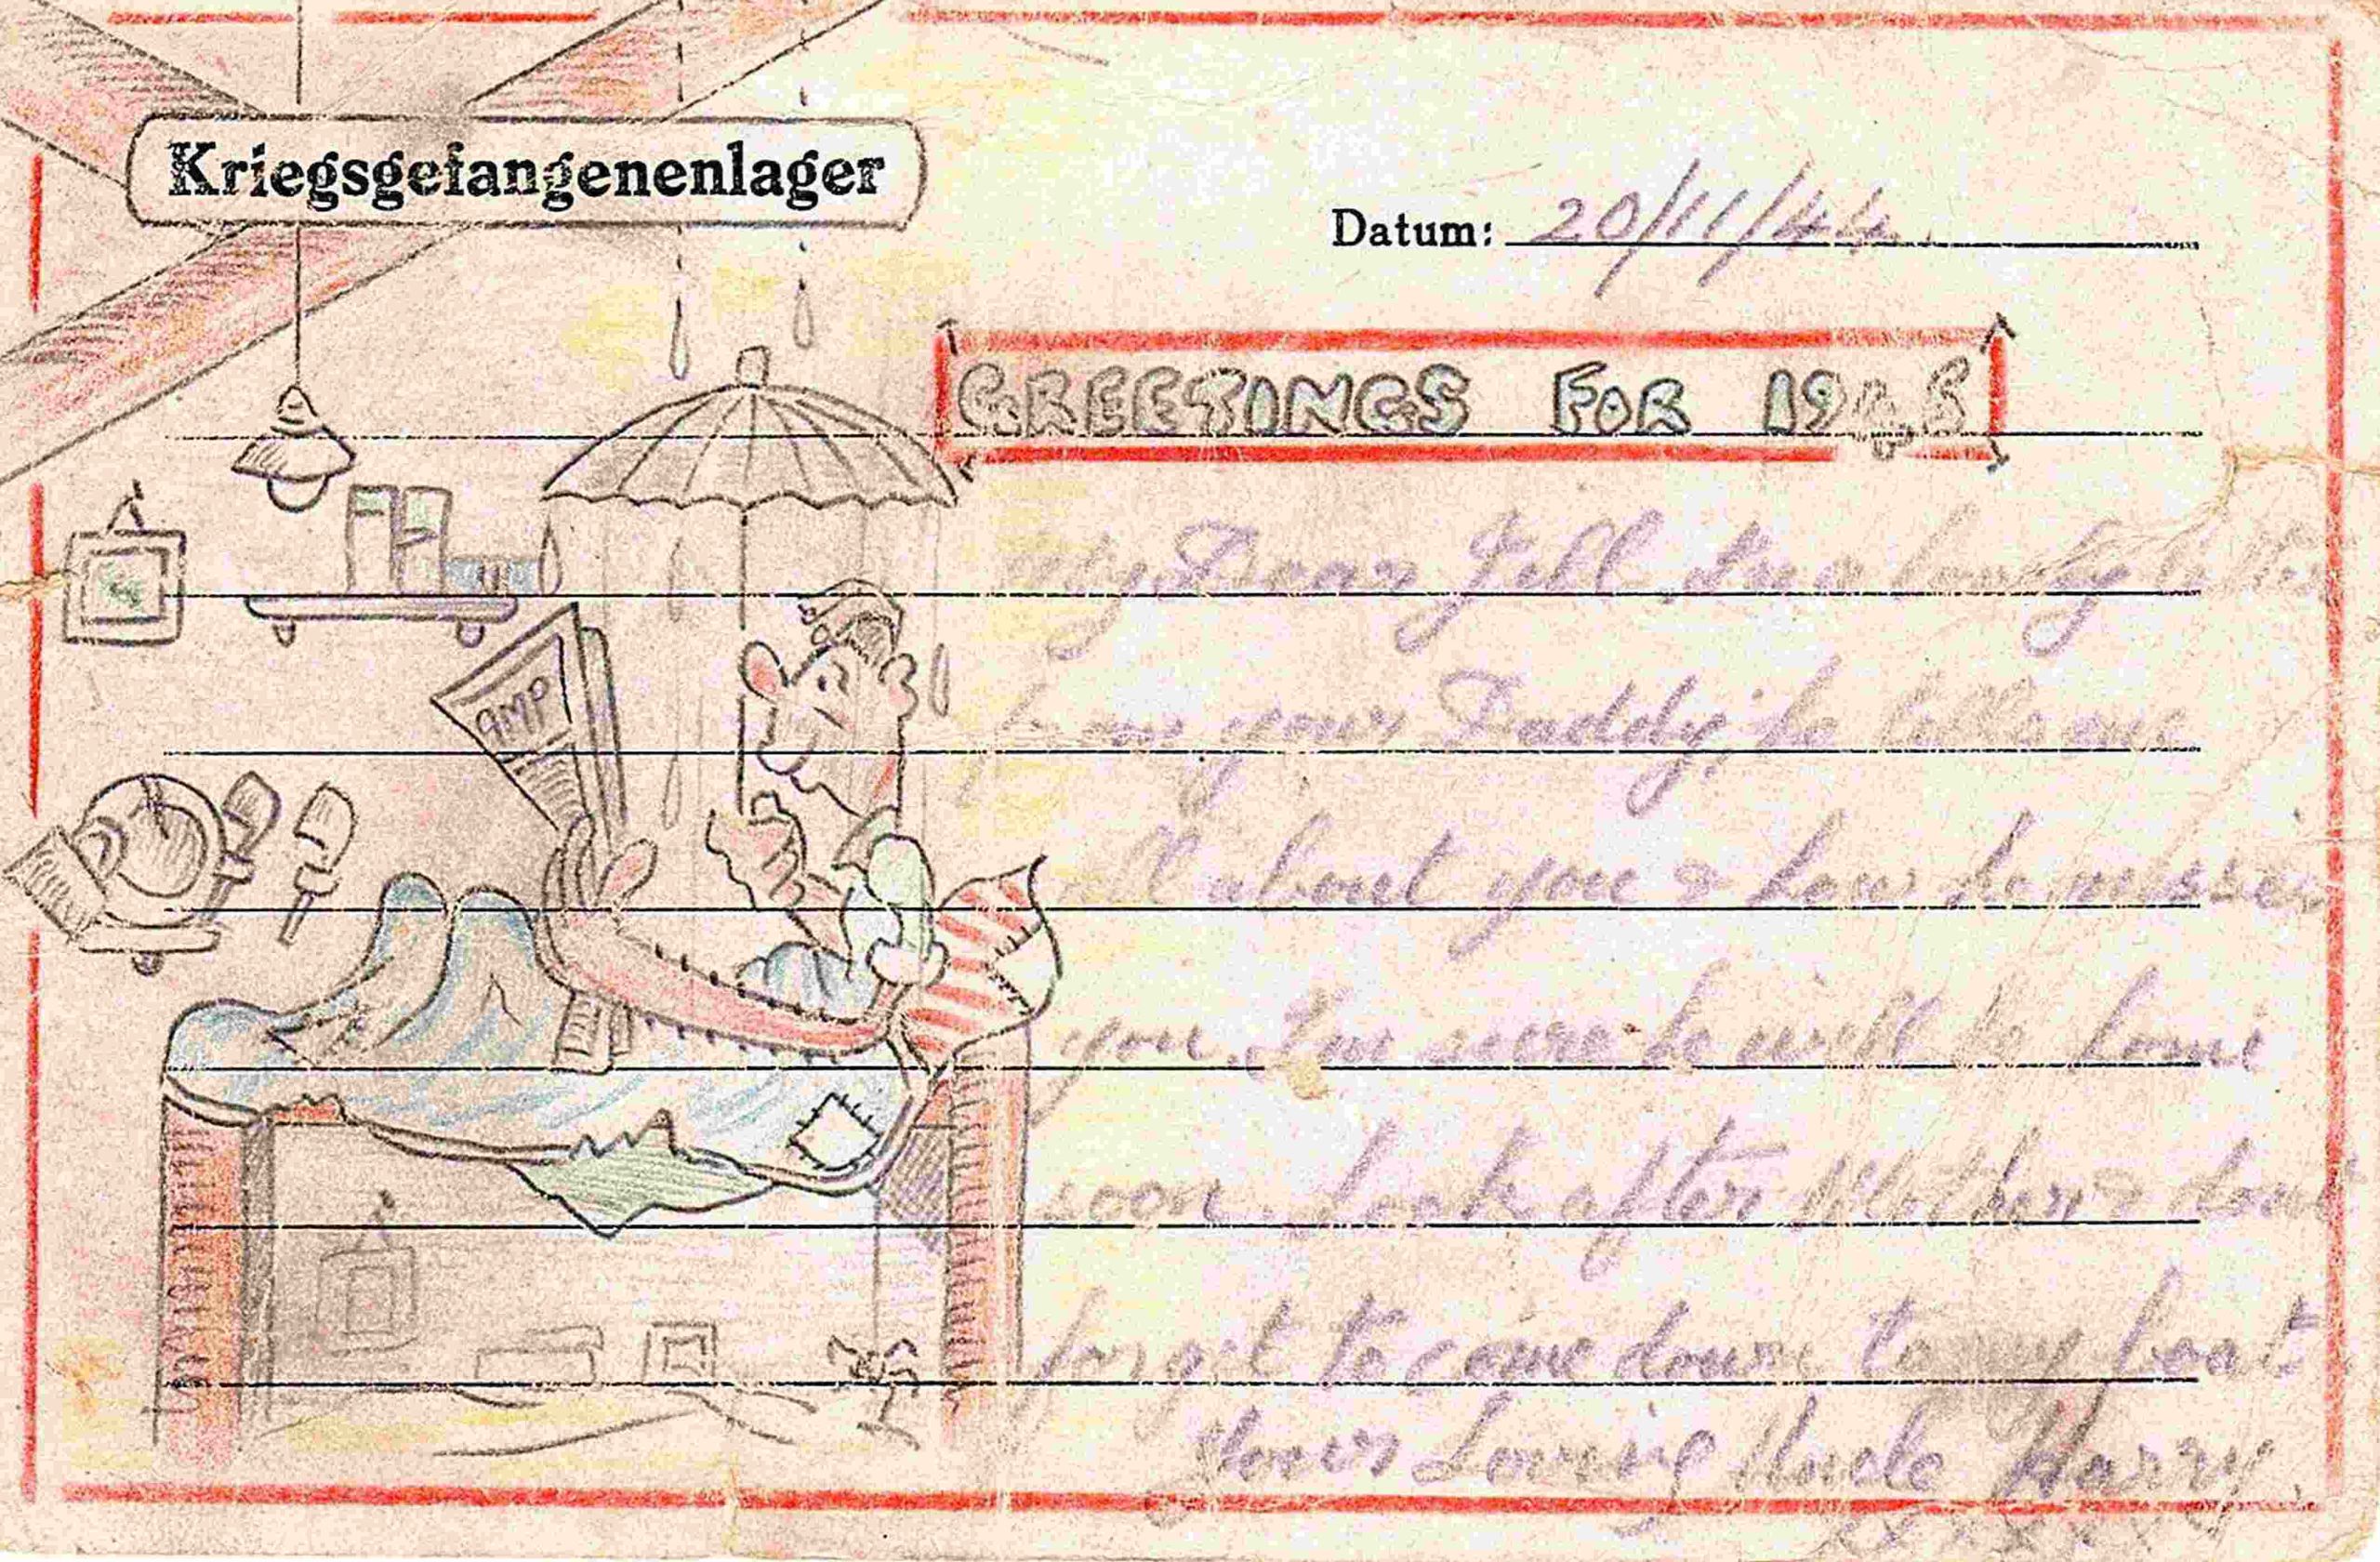 Kriegsgefangenenlager
Datum: 20/11/44.
GREETINGS FOR 1945
My Dear Jill, a lovely letter
from your Daddy, he tells me
all about you & how he misses
you. I'm sure he will be home
soon. Look after Mother & dont
forget to come down to my boat
Your Loving Uncle Harry.
xxxxxxx
CAMP